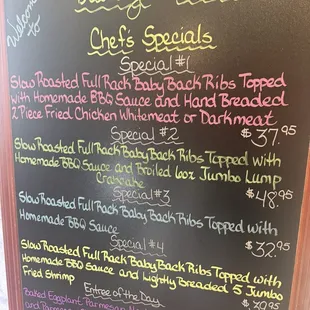 Welcome
to
Chef's Specials
Special #1
Slow Roasted Full Rack Baby Back Ribs Topped
with Homemade BBQ Sauce and Hand Breaded
2 Piece Fried Chicken Whitemeat or Darkmeat
$37.95
Special #2
Slow Roasted Full Rack Baby Back Ribs Topped with
Homemade BBQ Sauce and Broiled 6oz Jumbo Lump
Crabcake
$48.95
Special #3
Slow Roasted Full Rack Baby Back Ribs Topped with
Homemade BBQ Sauce
$32.95
Special #4
Slow Roasted Full Rack Baby Back Ribs Topped with
Homemade BBQ Sauce and Lightly Breaded 5 Jumbo
Fried Shrimp
$39.95
Entree of the Day
Baked Eggplant Parmesan